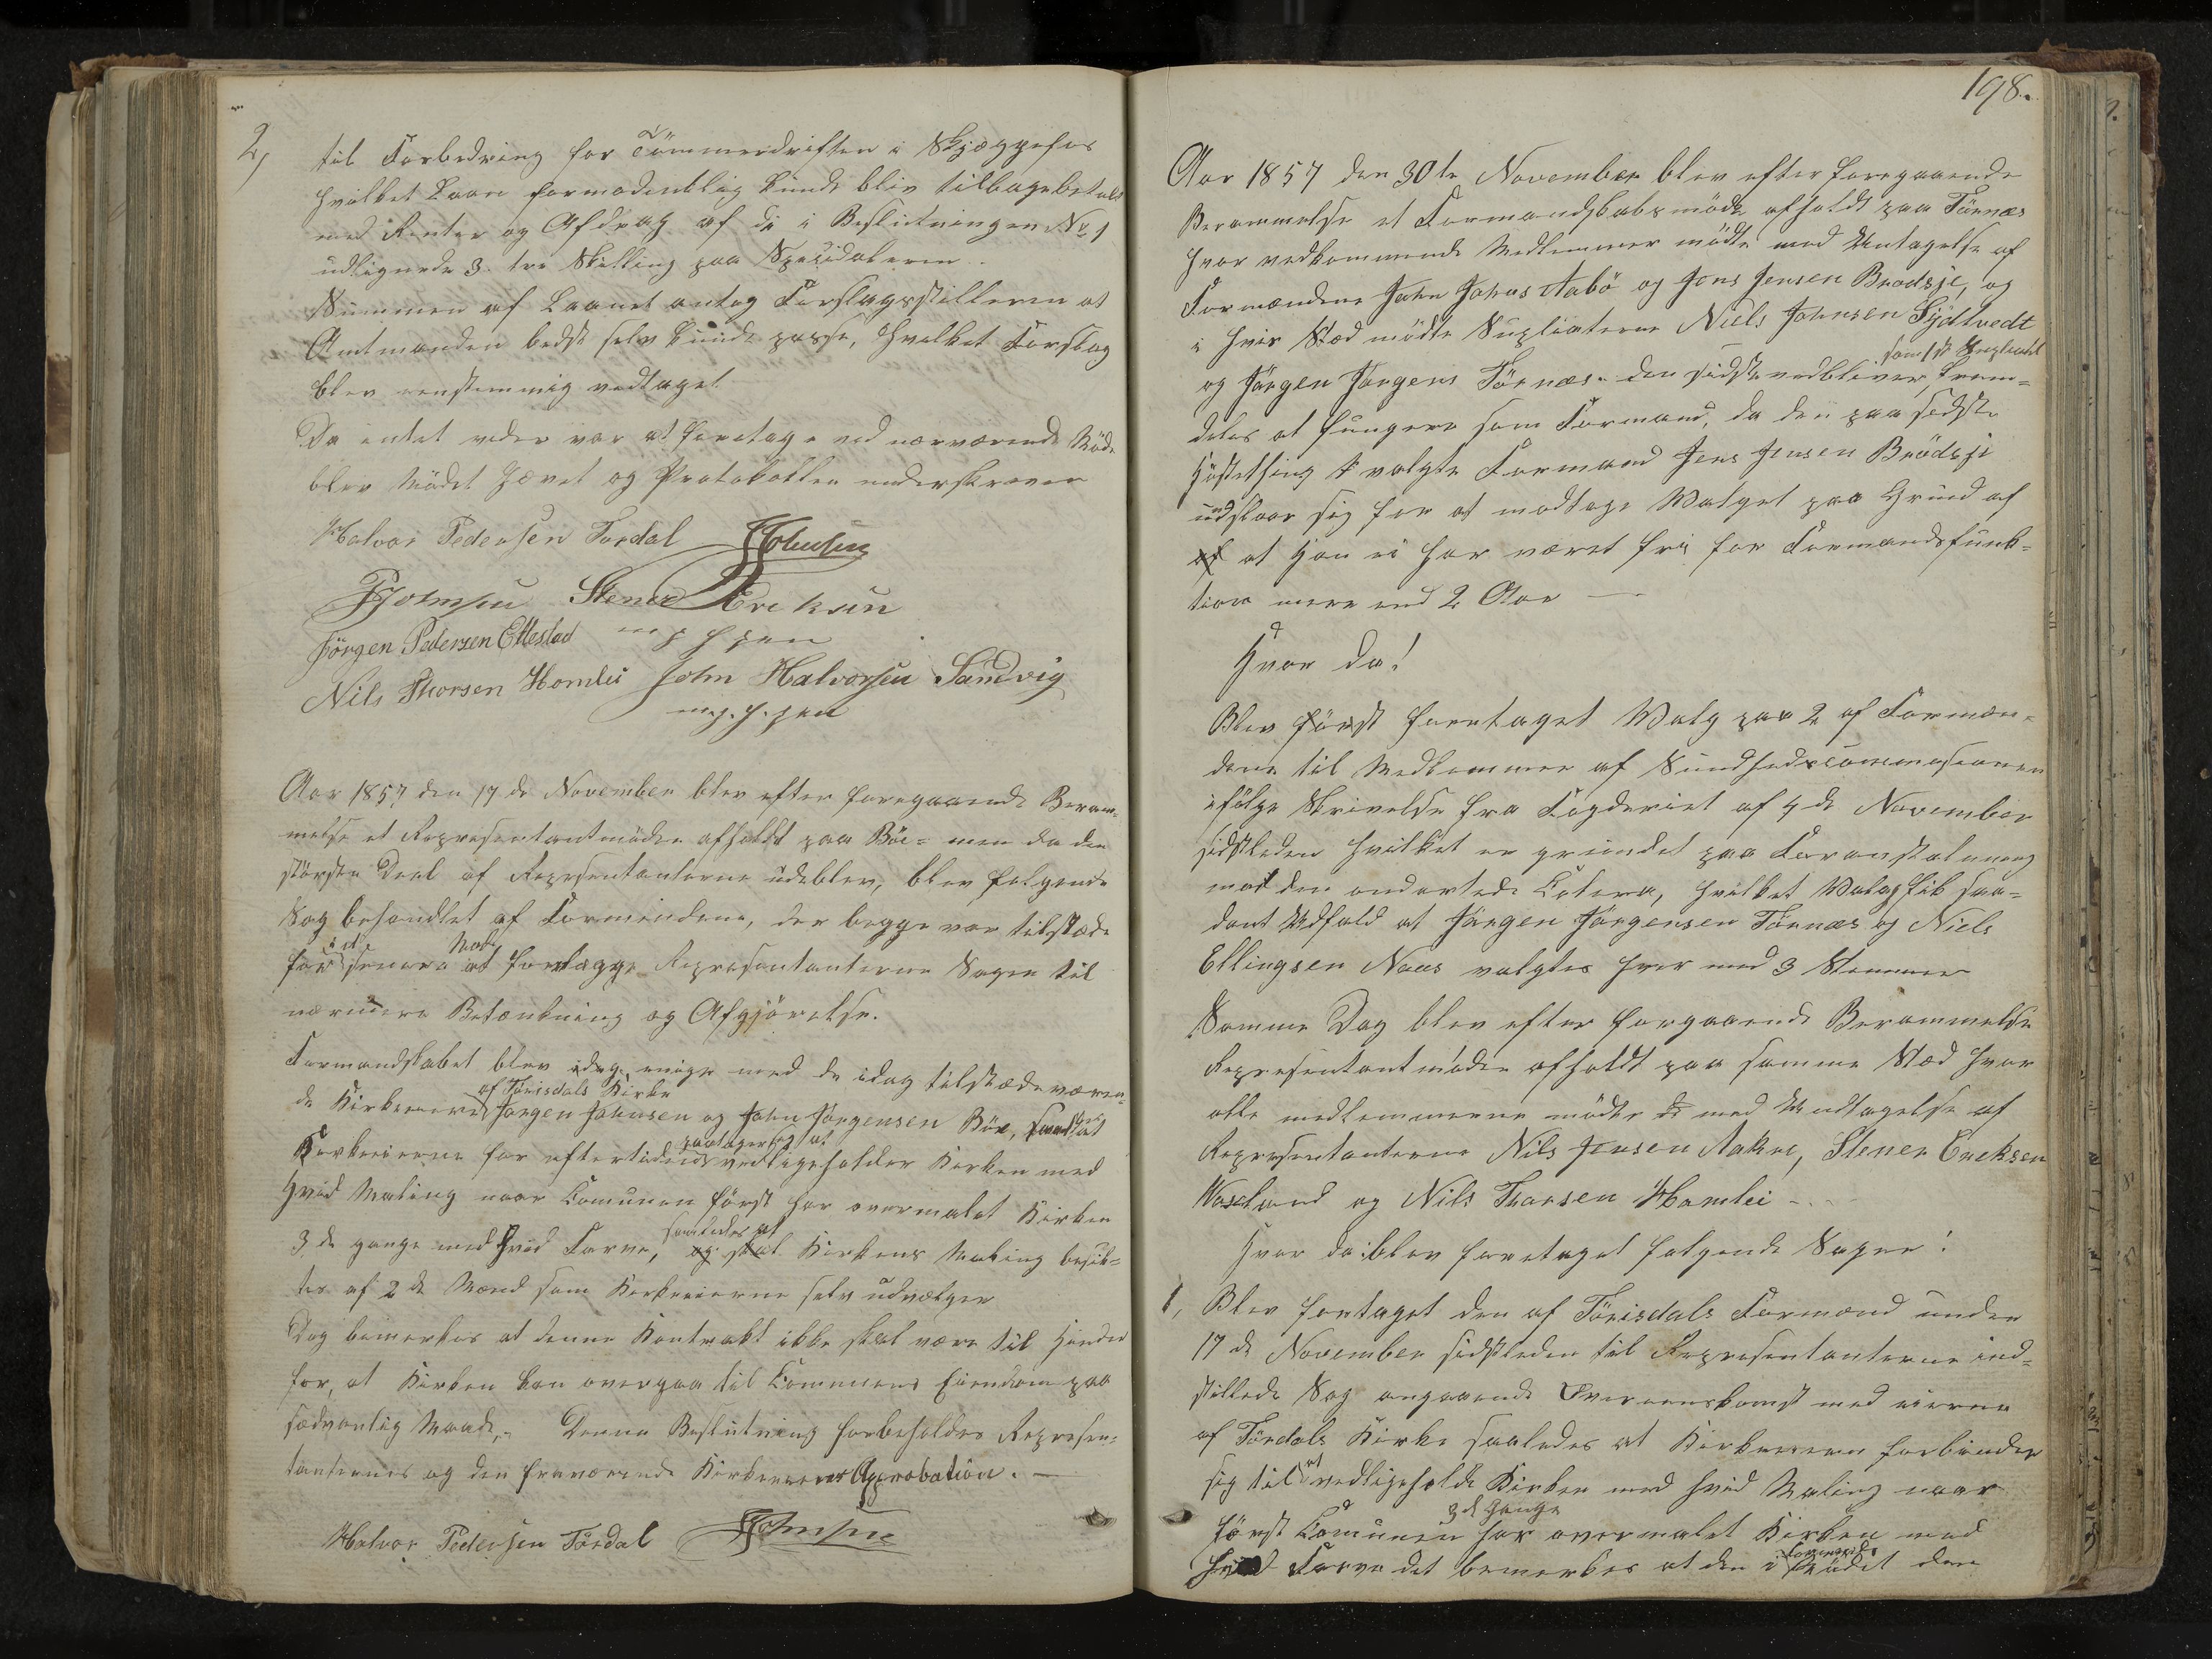 2, til Forbedring for Tömmerdriften i Skjeggefos
hvilket Laan formodentlig kunde bliv tilbagebetalt
med Renter og Afdrag af de i Beslutningen No 1
udlignede 3 tre Skilling paa Speciedaleren
Summen af Laanet antog Forslagsstilleren at
Amtmanden bedst selv kunde passe, hvilket Forslag
blev eenstemmig vedtaget
Da intet veder var at foretage ved nærværende Möde
blev Mödet hævet og Protokollen underskreven
Halvor Pedersen Tordal JJohnsen
PJohnsen Stener Ereksen
Jörgen Pedersen Ettestad m p h pen
Nils Thorsen Homlei John Halvorsen Sandvig
m. p. h. pen
Aar 1857 den 17de November blev efter foregaaende Beram-
melse et Representantmöde afholdt paa Böe - men da den
störste Deel af Represententerne udeblev, blev følgende
Sag behandlet af Formendene, der begge var tilstæde
for i et senere Möde at forelægge Representanterne Sagen til
nærmere Betænkning og Afgjörelse.
Formandskabet blev idag enige med de idag tilstædeværen-
de Kirkeeiere af Törisdals Kirke Jorgen Johnsen og John Jörgensen Böe, at
Kirkeeierne for eftertiden paatager sig at vedligeholder Kirken med
Hvid Maling naar Comunen först har overmalet Kirken
3de gange med Hvid Farve, saaledes at Kirkens Maling besik-
tes af 2de Mænd som Kirkeeierne selv udvælger
Dog bemerkes at denne Kontrakt ikke skal være til Hinder
for, at Kirken kan overgaa til Communens Eiendom paa
sædvanlig Maade, - Denne Beslutning forbeholdes Represen-
tanternes og den fraværende Kirkeeiers Approbation. —
Halvor Pedersen Tördal JJohnsen
198.
Aar 1857 den 30te November blev efter foregaaende
Berammelse et Formandskabsmöde afholdt paa Törnæs
hvor vedkommende Medlemmer mödte med Untagelse af
Formændene John Johns Aabö og Jens Jensen Brödsje, og
i hvis Sted mödte Supliaterne Niels Johnsen Sydtvedt
og Jörgen Jörgens Törnæs. den sidste vedbliver som 1ste Supleant frem-
deles at fungere som Formand, da den paa sidste
Hösttething valgte Formand Jens Jensen Brödsje
undslaar sig for at modtage Valget paa Grund af
at Han ei har været fri for Formandsfunk-
tion mere end 2 Aar —
Hvor da!
Blev först foretaget Valg paa 2 af Formæn-
dene til Medlemmer af Sundhedscommisionen
ifölge Skrivelse fra Fogderiet af 4de November
sidstleden hvilket er grundet paa Foranstaltning
mod den ondartede Colera, hvilket Valg fik saa-
dant Udfald at Jörgen Jörgensen Törnæs og Niels
Ellingsen Naas valgtes hver med 3 Stemmer
Samme Dag blev efter forgaaende Berammelse
Representantmöde afholdt paa samme Sted hvor
alle medlemmerne mödte med Undtagelse af
Representanterne Nils Jensen Aakre, Stener Ereksen
Wasland og Nils Thorsen Homlei - . -
Hvor da blev foretaget folgende Sager:
1, Blev foretaget den af Törisdals Formænd under
17de November sidstleden til Representanterne ind-
stillede Sag angaaende Overeenskomst med eierne
af Tördals Kirke saaledes at Kirkeeieren forbinder
sig til at vedligeholde Kirken med hvid Maling naar
först Comunen har 3de Gange overmalet Kirken med
hvid Farve det bemerkes at den i Mödet den